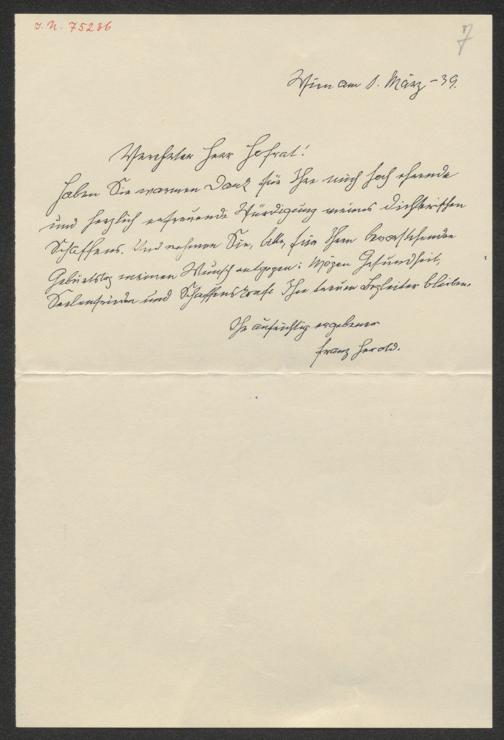 I. N. 75286
7
Wien am 1. März -39.
Verehrter Herr Hofrat!
Haben Sie warmen Dank für Ihre mich hoch ehrende
und herzlich erfreuende Würdigung meines dichterischen
Schaffens. Und nehmen Sie, bitte, für Ihren bevorstehenden
Geburtstag meinen Wunsch entgegen: Mögen Gesundheit,
Seelenfrieden und Schaffenskraft Ihre treuen Begleiter bleiben.
Ihr aufrichtig ergebener
Franz Herold.